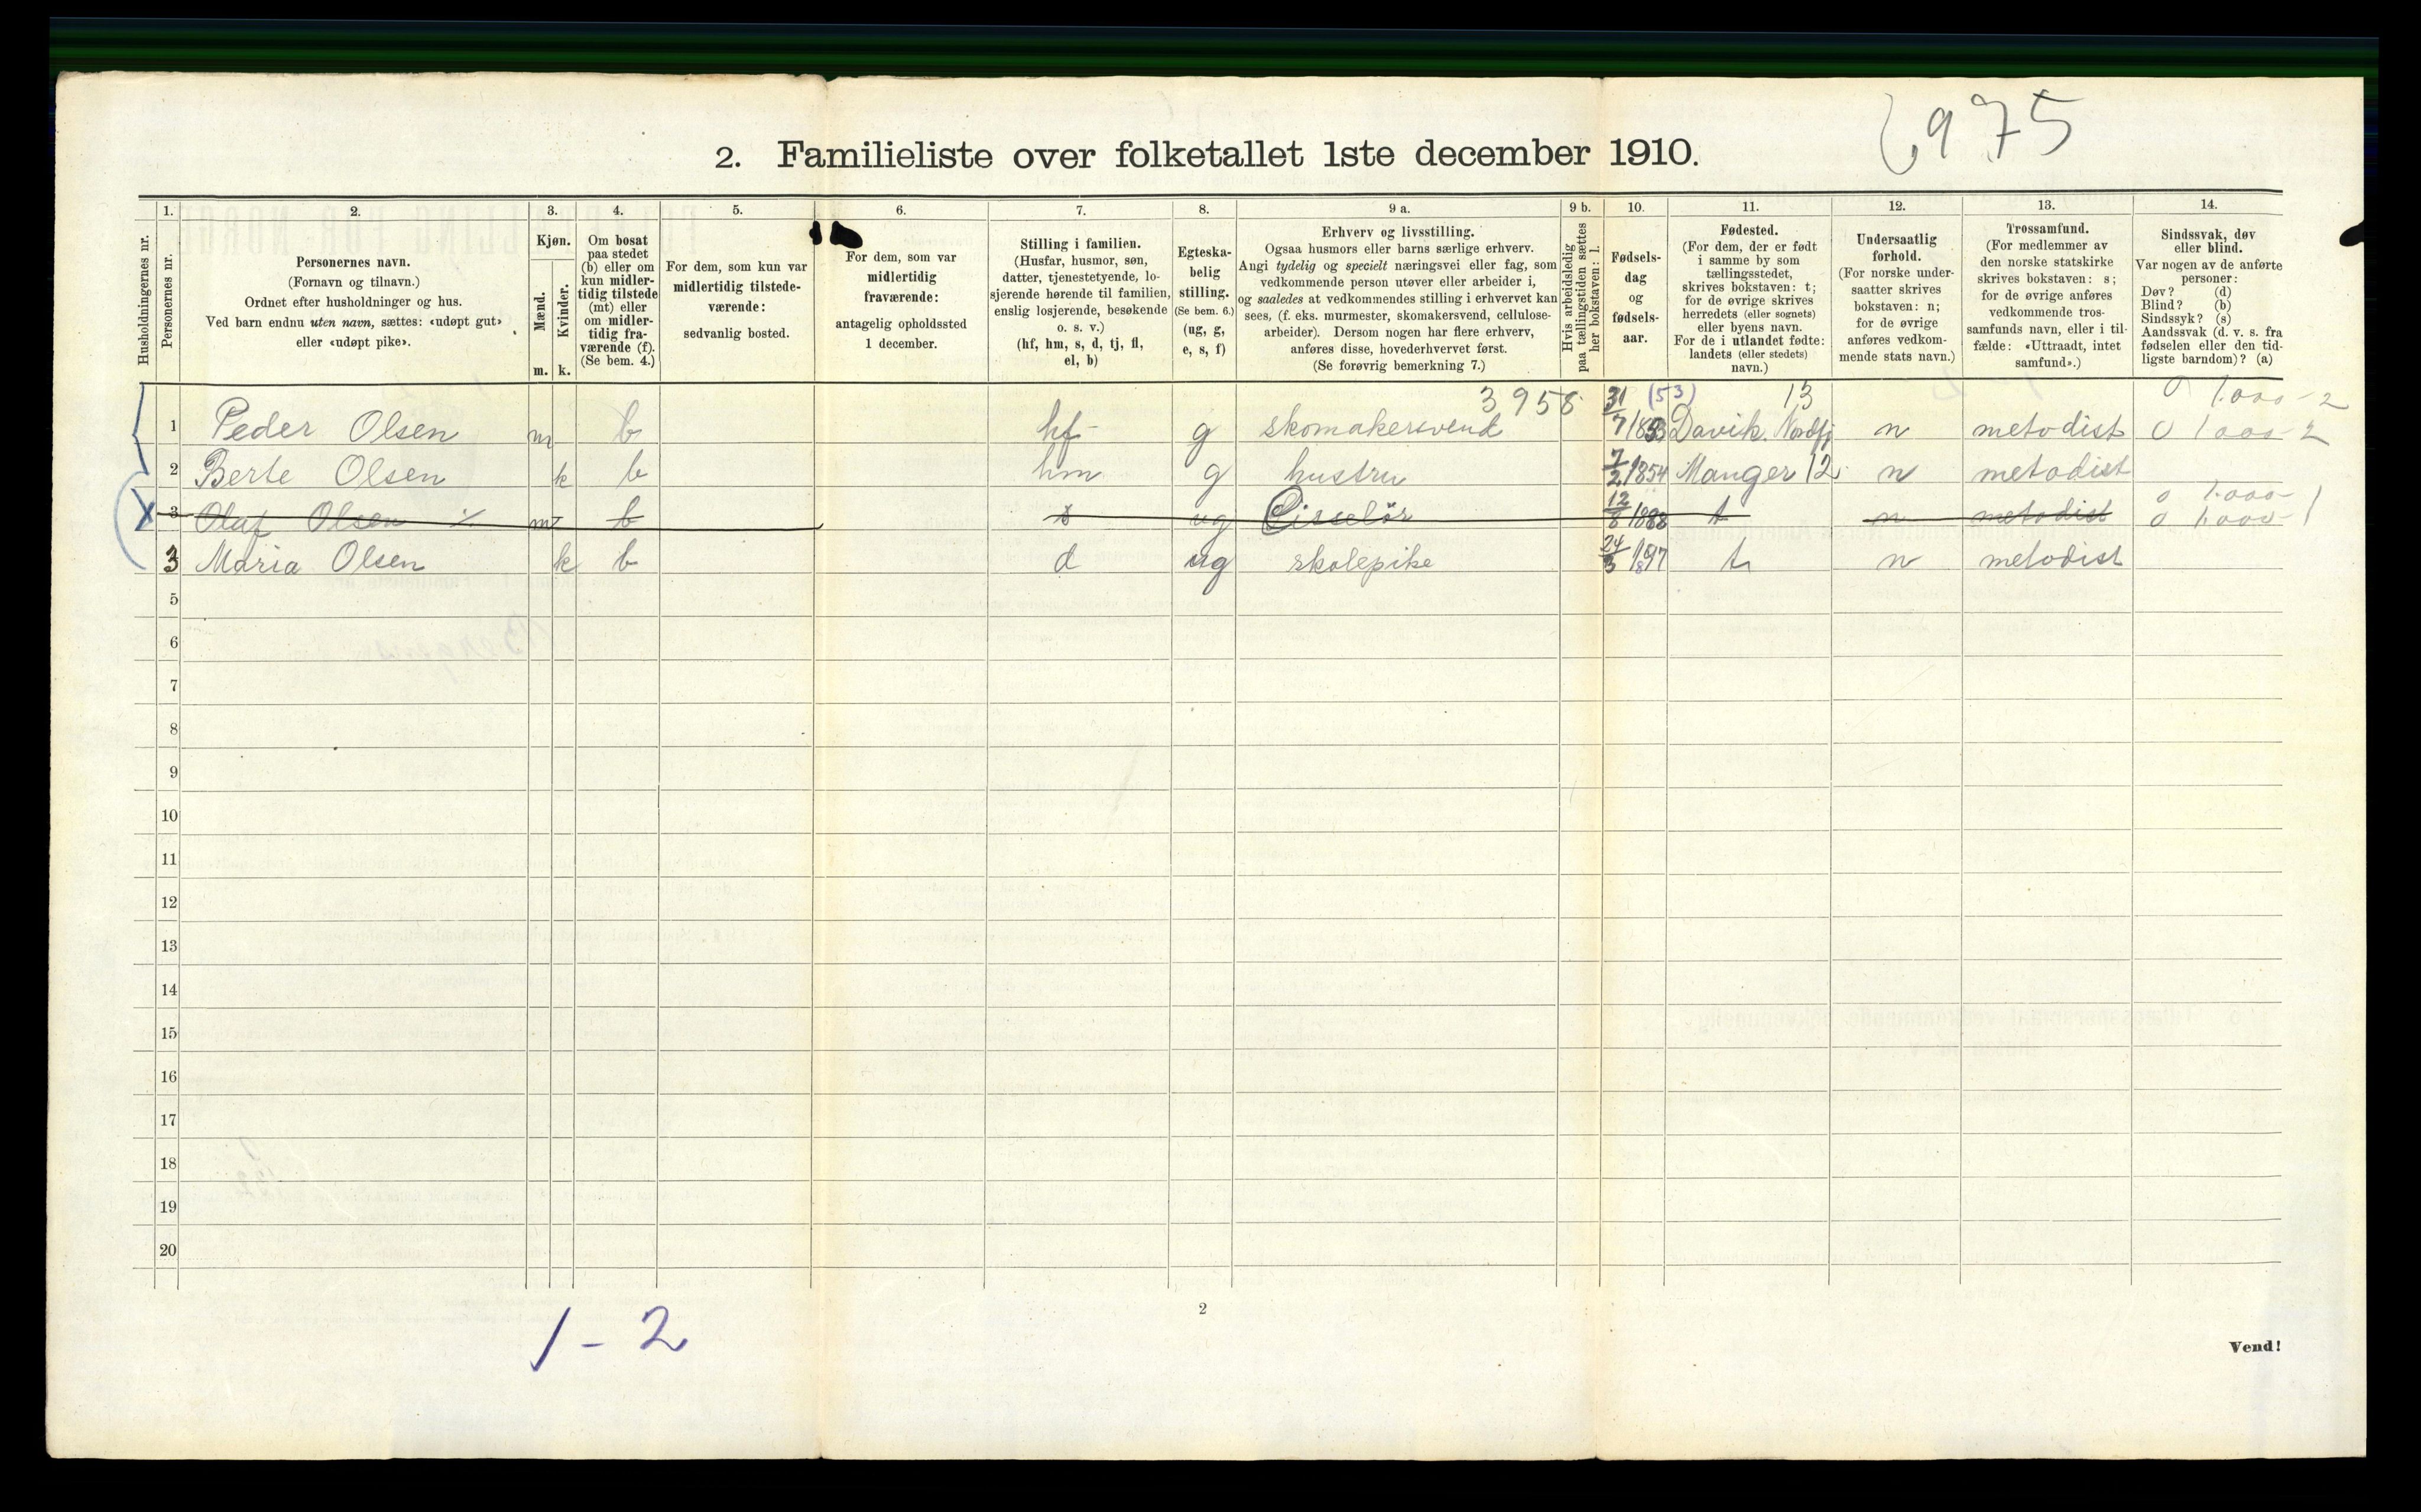 6975
2. Familieliste over folketallet 1ste december 1910.
Husholdningernes nr.
1.
Personernes nr.
2.
Personernes navn.
(Fornavn og tilnavn.)
Ordnet efter husholdninger og hus.
Ved barn endnu uten navn, sættes: «udøpt gut»
eller «udøpt pike».
3.
Kjøn.
Mænd.
Kvinder.
m. k.
4.
Om bosat
paa stedet
(b) eller om
kun midler-
tidig tilstede
(mt) eller
om midler-
tidig fra-
værende (f).
(Se bem. 4.)
5.
For dem, som kun var
midlertidig tilstede-
værende:
sedvanlig bosted.
6.
For dem, som var
midlertidig
fraværende:
antagelig opholdssted
1 december.
7.
Stilling i familien.
(Husfar, husmor, søn,
datter, tjenestetyende, lo-
sjerende hørende til familien,
enslig losjerende, besøkende
o. s. v.)
(hf, hm, s, d, tj, fl,
el, b)
8.
Egteska-
belig
stilling.
(Se bem. 6.)
(ug, g,
e, s, f)
9 a.
Erhverv og livsstilling.
Ogsaa husmors eller barns særlige erhverv.
Angi tydelig og specielt næringsvei eller fag, som
vedkommende person utøver eller arbeider i,
og saaledes at vedkommendes stilling i erhvervet kan
sees, (f. eks. murmester, skomakersvend, cellulose-
arbeider). Dersom nogen har flere erhverv,
anføres disse, hovederhvervet først.
(Se forøvrig bemerkning 7.)
9 b.
Hvis arbeidsledig
paa tællingstiden sættes
her bokstaven: l.
10.
Fødsels-
dag
og
fødsels-
aar.
11.
Fødested.
(For dem, der er født
i samme by som
tællingsstedet,
skrives bokstaven: t;
for de øvrige skrives
herredets (eller sognets)
eller byens navn.
For de i utlandet fødte:
landets (eller stedets)
navn.)
12.
Undersaatlig
forhold.
(For norske under-
saatter skrives
bokstaven: n;
for de øvrige
anføres vedkom-
mende stats navn.)
13.
Trossamfund.
(For medlemmer av
den norske statskirke
skrives bokstaven: s;
for de øvrige anføres
vedkommende tros-
samfunds navn, eller i til-
fælde: «Uttraadt, intet
samfund».)
14.
Sindssvak, døv
eller blind.
Var nogen av de anførte
personer:
Døv? (d)
Blind? (b)
Sindssyk? (s)
Aandssvak (d. v. s. fra
fødselen eller den tid-
ligste barndom)? (a)
3958 (53) 13 0 1.000-2
1 Peder Olsen m b hf g skomakersvend 31/7 1853 Davik. Nordfj n metodist 0 1000-2
2 Berte Olsen k b hm g hustru 7/2 1854 Manger 12 n metodist
0 1.000-
X 3 Olaf Olsen m b s ug Cisselør 12/8 1888 t n metodist 0 1.000-1
3 Maria Olsen k b d ug skolepike 24/3 1897 t n metodist
5
6
7
8
9
10
11
12
13
14
15
16
17
18
19
20
1 - 2
2
Vend!